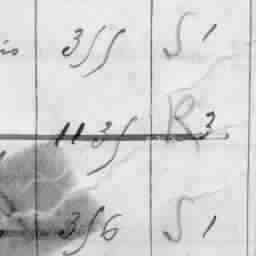 is 355 S 1
1135 R 3
356 S 1